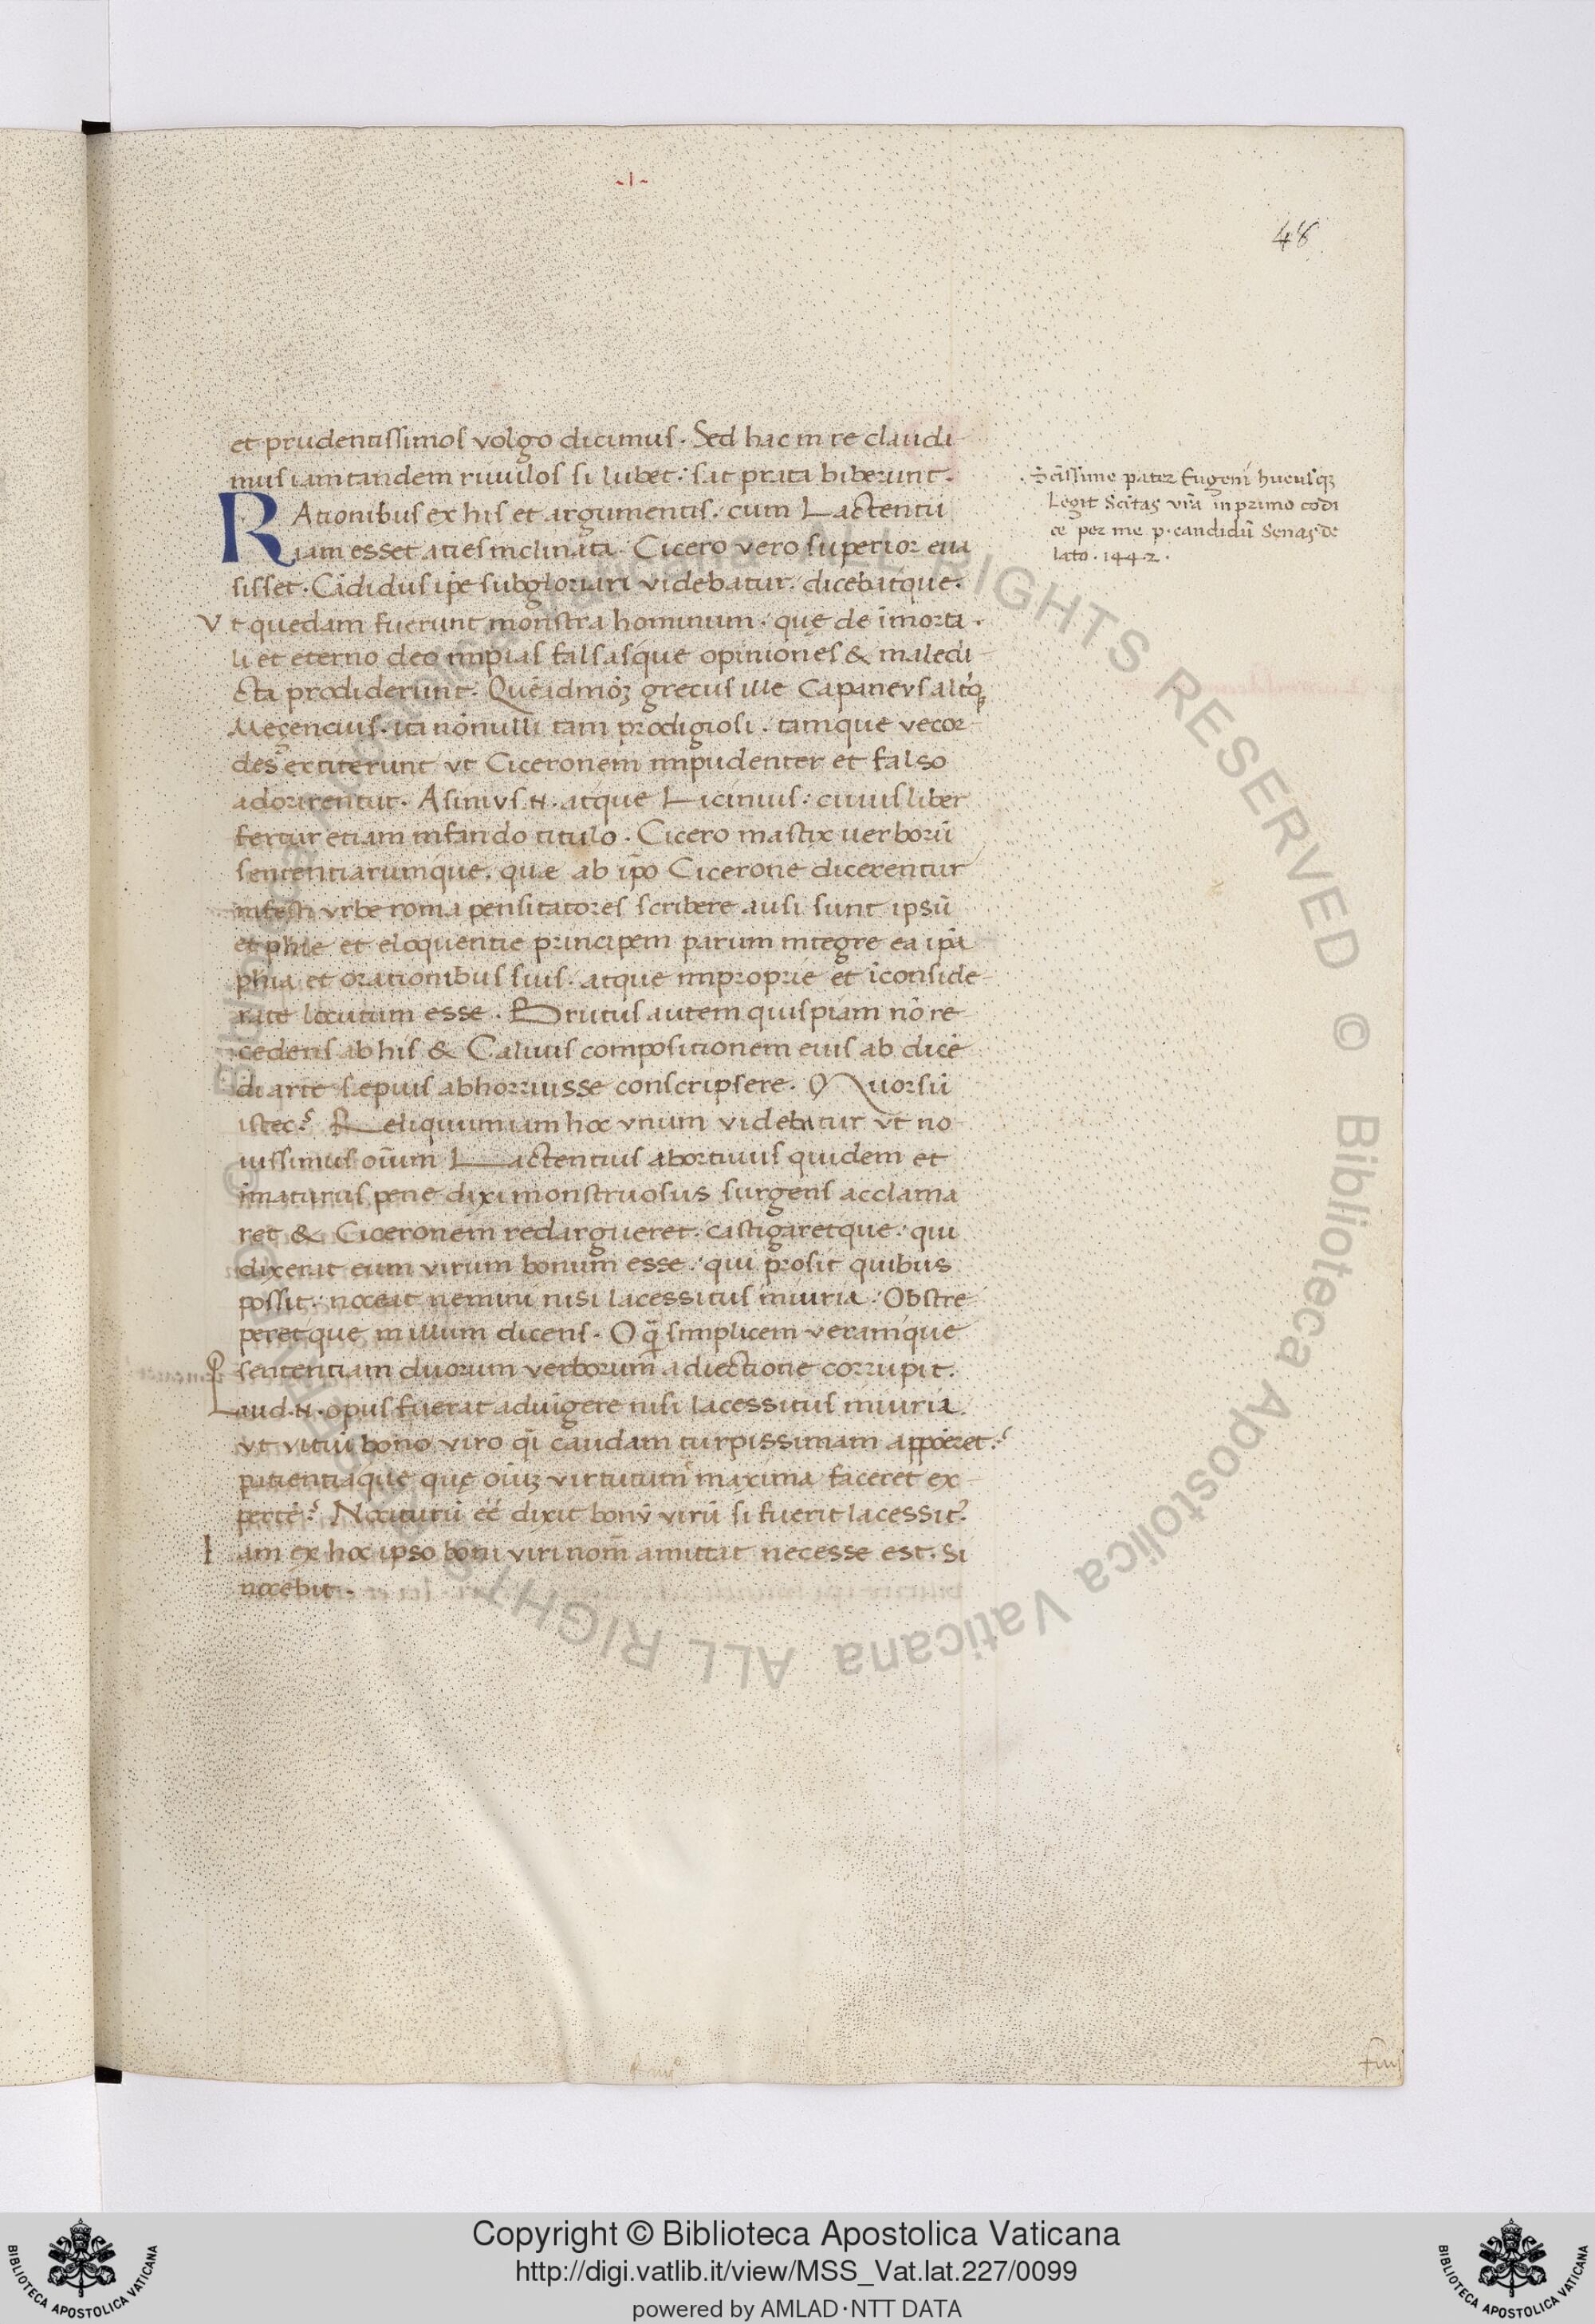 -I-
48
et prudentissimos volgo dicimus. Sed hac in re claudi
mus iam tandem riuulos si lubet: sat prata biberunt.
RAtionibus ex his et argumentis. cum Lactentii
iam esset aties inclinata. Cicero vero superior eua
sisset. Cãdidus ip̃e subgloriari videbatur. dicebatque.
Vt quedam fuerunt monstra hominum. quę de ĩmorta
li et eterno deo impias falsasque opiniones & maledi
cta prodiderunt. grecus ille Capaneus
Meçencius. ita nõnulli tam prodigiosi. tamque vecor
des extiterunt vt Ciceronem impudenter et falso
adorirentur. Asinius .N. atque Licinius: cuius liber
fertur etiam infando titulo. Cicero mastix uerborũ
sententiarumque. quae ab ip̃o Cicerone dicerentur
infesti vrbe roma pensitatores scribere ausi sunt ipsũ
et phĩe et eloquentie principem parum integre ea ip̃a
phĩa et orationibus suis. atque improprie et ĩconside
rate locutum esse. Brutus autem quispiam nõ re
cedens ab his & Caluus compositionem eius ab dicẽ
di arte sepius abhorruisse conscripsere. Quorsũ
istec? Reliquum iam hoc vnum videbatur vt no
uissimus oĩum Lactentius abortiuus quidem et
ĩmaturus pene dixi monstruosus surgens acclama
ret & Ciceronem redargueret. castigaretque: qui
dixerat eum virum bonum esse: qui prosit quibus
possit: noceat nemini nisi lacessitus iniuria. Obstre
peretque in illum dicens. O q̃ simplicem veramque
sententiam duorum verborum adiectione corrupit.
.N. opus fuerat adiũgere nisi lacessitus iniuria.
vt vitiũ bono viro q̃i caudam turpissimam appõeret?
patientiaque quę oĩuz virtutum maxima faceret ex
pertẽ? Nociturũ eẽ dixit bonũ virũ si fuerit lacessit9
Iam ex hoc ipso boni viri nom̃ amittat necesse est. Si
nocebit.
Eugeni hucusq;
Legit Scitas vr̃a in primo codi
ce per me p. candidũ
lato. 1442.
Copyright © Biblioteca Apostolica Vaticana
http://digi.vatlib.it/view/MSS_Vat.lat.227/0099
powered by AMLAD·NTT DATA
BIBLIOTECA APOSTOLICA VATICANA
BIBLIOTECA APOSTOLICA VATICANA
© Biblioteca Apostolica Vaticana ALL RIGHTS RESERVED © Biblioteca Apostolica Vaticana ALL RIGHTS